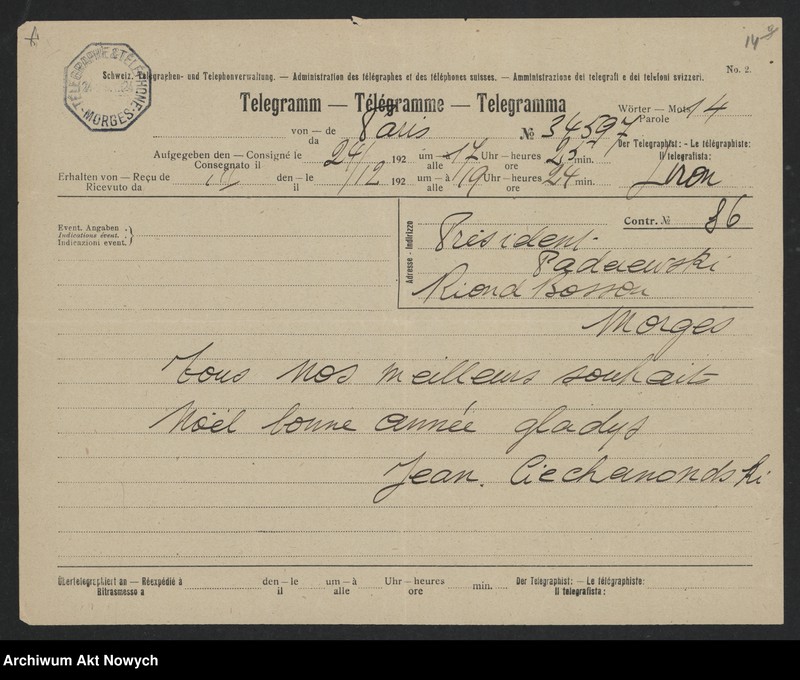 14
TELEGRAPHE & TELEPHONE
MORGES
Schweiz. Telegraphen- und Telephonverwaltung. — Administration des télégraphes et des téléphones suisses. — Amministrazione dei telegrafi e dei telefoni svizzeri.
No. 2.
Telegramm — Télégramme — Telegramma
Wörter — Mots 14
Parole
von — de Paris
da
№ 34597
Der Telegraphist: - Le télégraphiste:
Il telegrafista:
Aufgegeben den — Consigné le 24/ 192 um — à 17 Uhr — heures 25 min.
Consegnato il alle ore
Erhalten von — Reçu de den — le /12 192 um — à /19 Uhr — heures 24 min.
Ricevuto da il alle ore
Event. Angaben
Indications évent.
Indicazioni event.
Adresse - Indirizzo
Contr. № 86
Président
Padaewski
Riond Bosson
Morges
Tous nos meilleurs souhaits
Noël bonne année gladys
Jean. Ciechanondski
Übertelegraphiert an — Réexpédié à den — le um — à Uhr — heures min. Der Telegraphist: — Le télégraphiste:
Ritrasmesso a il alle ore Il telegrafista:
Archiwum Akt Nowych